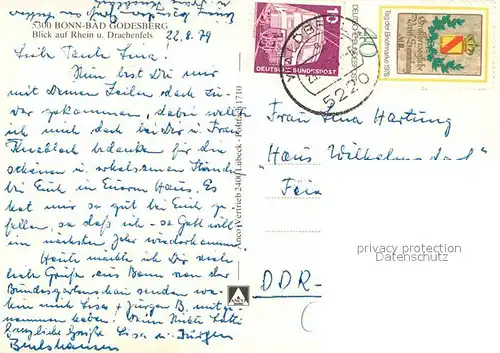 5300 BONN-BAD GODESBERG
Blick auf Rhein u. Drachenfels
22.8.79
Liebe Tante Lina.
Nun bist Du mir
mit Deinen Zeilen doch zu-
vor gekommen, dabei wollte
ich mich doch bei Dir u. Frau
bedanken für die
schönen u. erholsamen Stunden
bei Euch in Eurem Haus. Es
hat mir so gut bei Euch ge-
fallen, so daß ich - so Gott will
im nächsten Jahr wiederkomme.
Heute möchte ich Dir recht
liebe Grüße aus Bonn von der
Bundesgartenschau senden wo-
hin mich Lisa + Jürgen B. mitge-
nommen haben. Deine Nichte
herzliche Grüße Lisa u. Jürgen
Anco-Vertrieb 2400 Lübeck · Postfach 1710
10
DEUTSCHE BUNDESPOST
40
DEUTSCHE BUNDESPOST
Tag der Briefmarke 1978
5220
Frau Lina Hartung
"Haus Wilhelmsdorf"
DDR-
privacy protection
Datenschutz